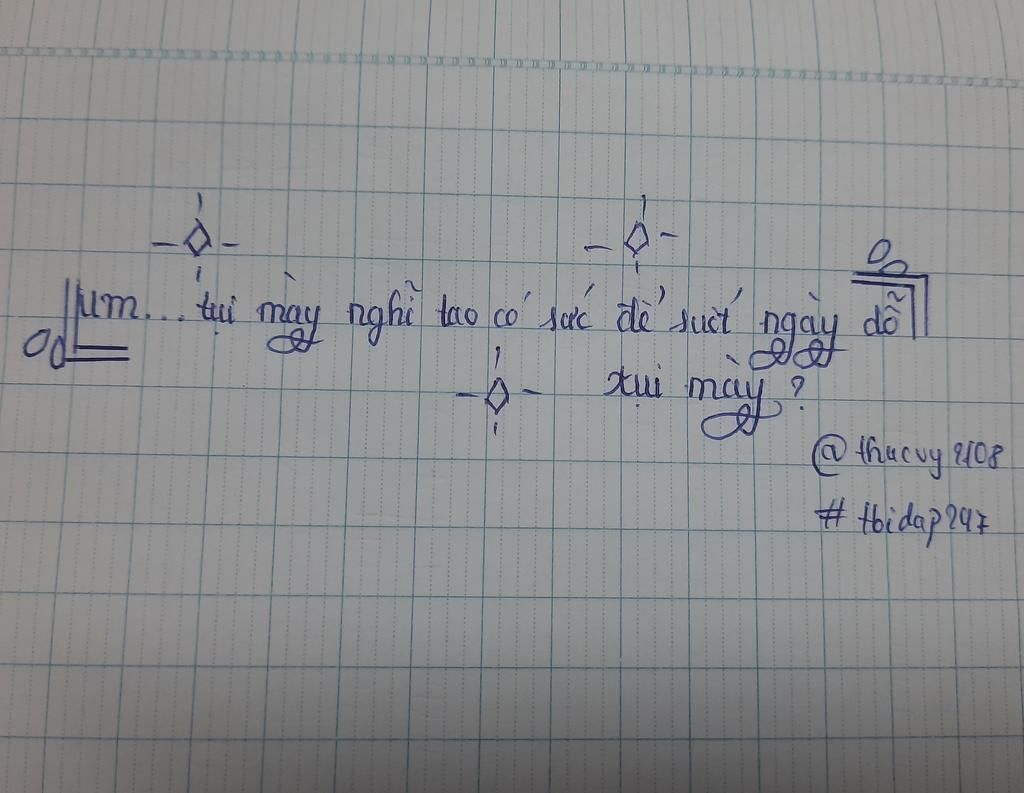 um... tụi mày nghĩ tao có sức để suốt ngày dỗ
tụi mày?
@thucvy2108
#tbidap247